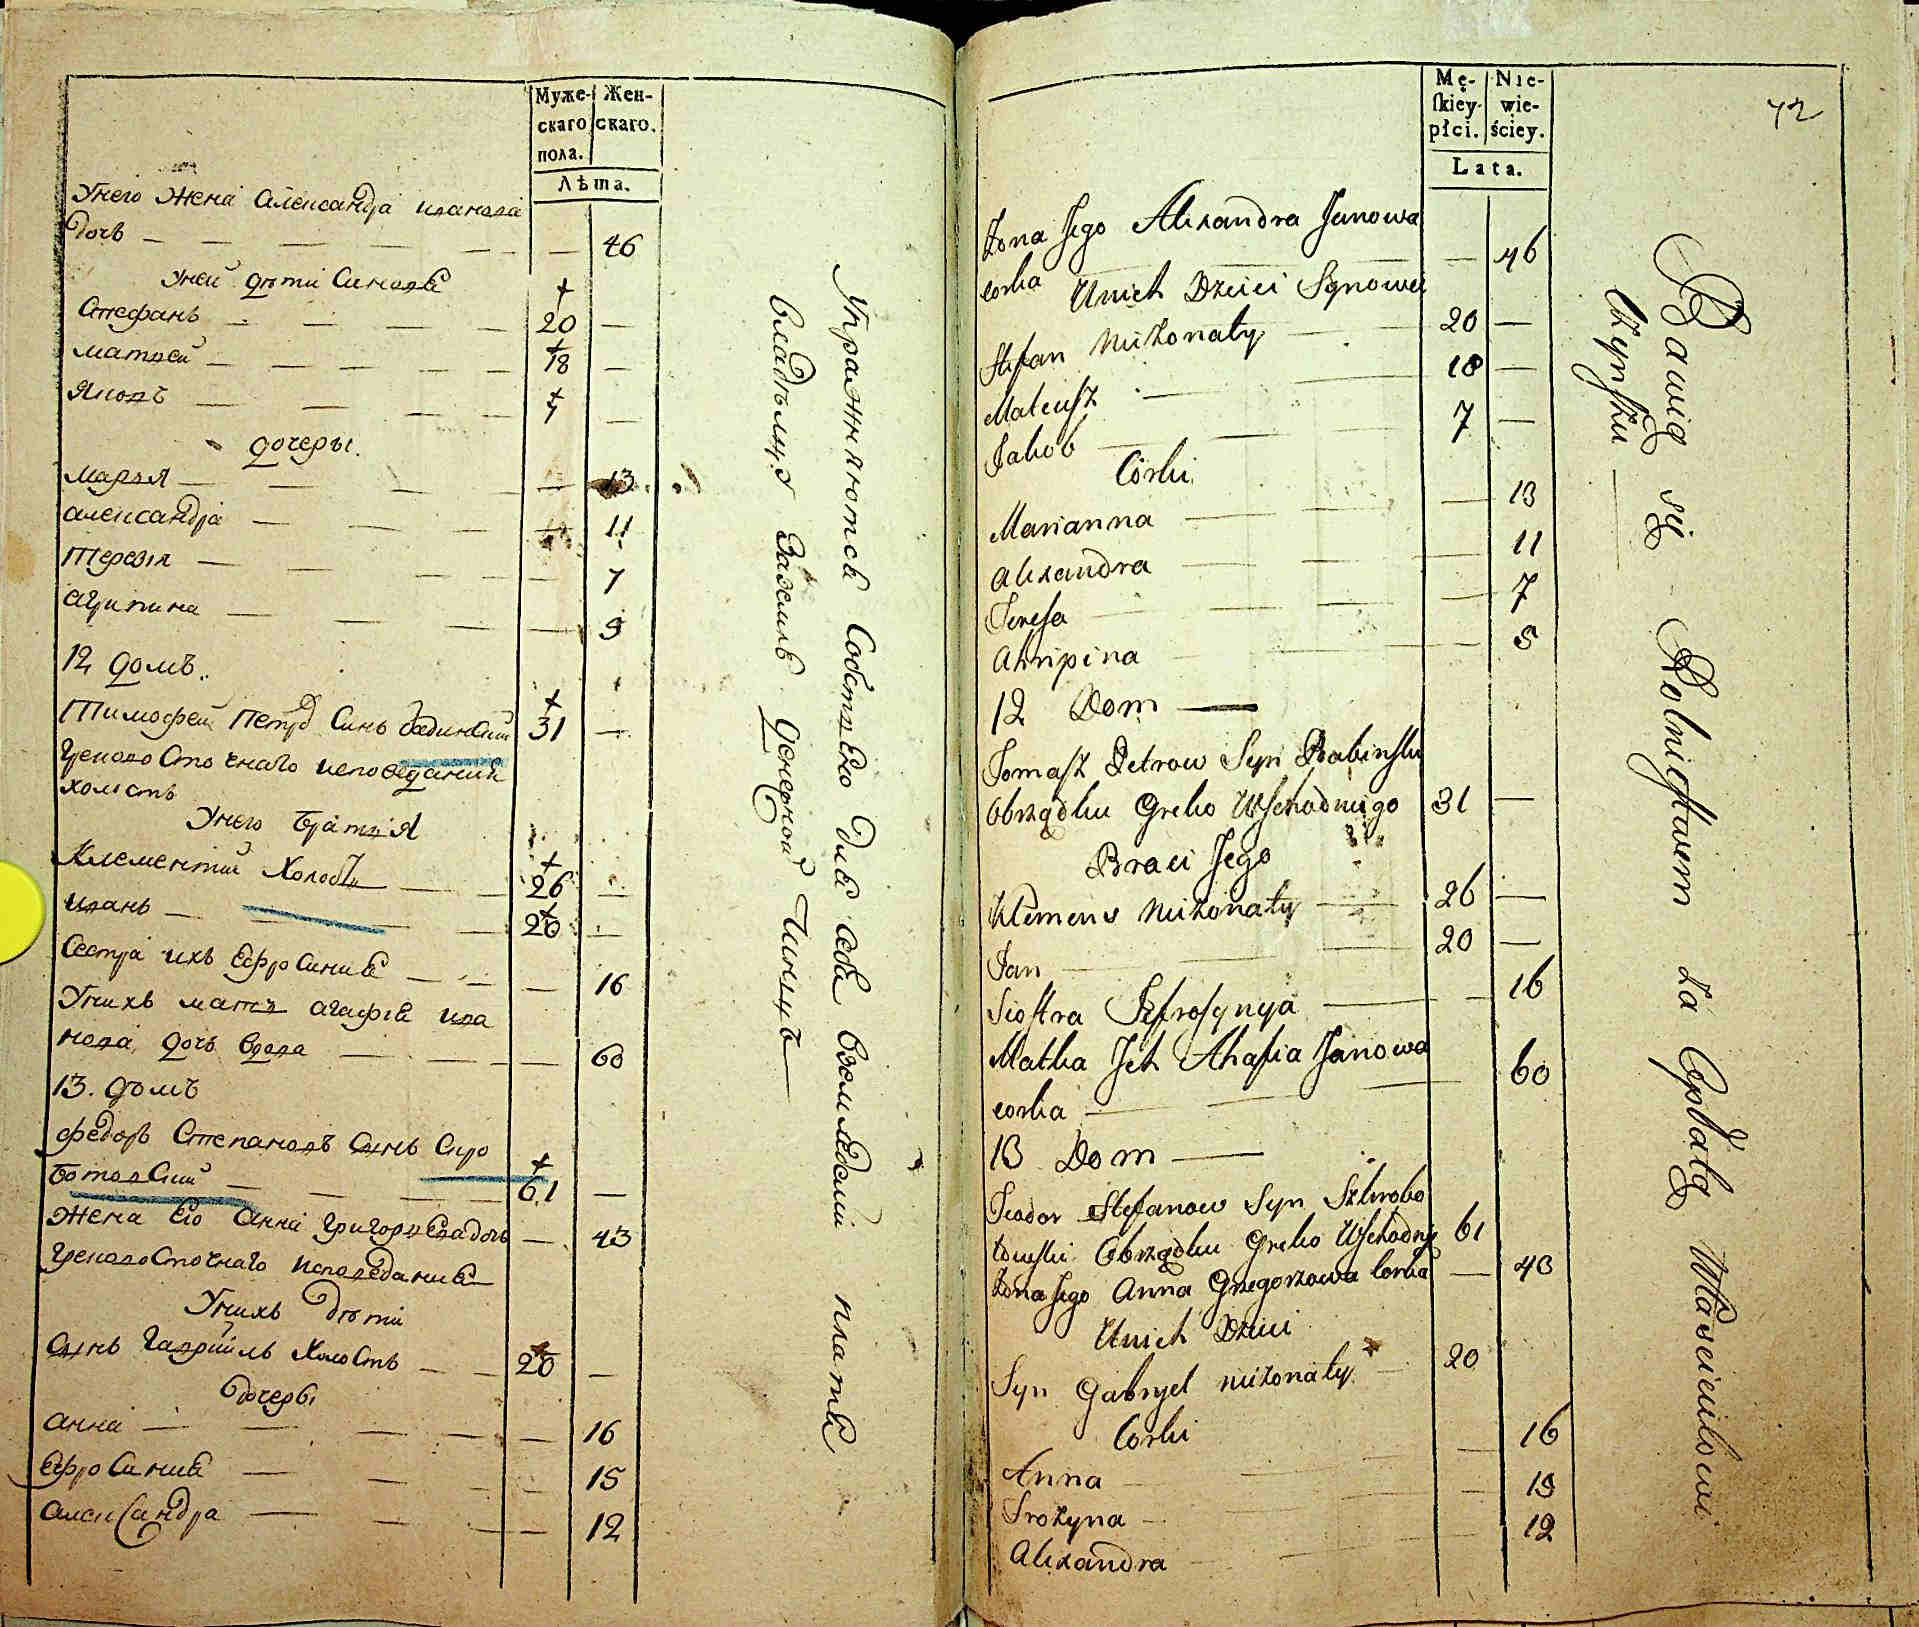 Муже-
скаго
пола.
Жен-
скаго.
Лѣта.
Унего Жена Александра иванова
дочь 46
Уней дѣти Синовѣ
Стефанъ 20
матвей 18
Яковъ 7
дочеры.
марья 13
александра 11
Терезія 7
агрипина 5
12 домъ.
Тимофей Петров Синъ бабинский 31
Грековосточнаго исповеданія
холостъ
Унего Братья
Клементий Холостъ 26
иванъ 20
Сестра ихъ Ефросиния 16
Унихъ мать агафія ива
нова дочь вдова 60
13. домъ
федоръ Степановъ Синъ Скро
ботовский 61
Жена Его Анна Григорьева дочь 43
Грековосточнаго исповеданія
Унихъ дѣти
Синъ Гавриилъ Холостъ 20
дочеры
Анна 16
Ефросиния 15
Александра 12
Упражняются Собственно для себя Взомледелии платя
владѣлцу Заземлю Денежной Чиншъ
72
Mę-
skiey
płci.
Nie-
wie-
ściey.
Lata.
Żona Jego Alexandra Janowa
corka 46
Unich Dzieci Synowei
Stefan Nieżonaty 20
Mateusz 18
Jakob 7
Córki
Marianna 13
Alexandra 11
Teresa 7
Ahripina 5
12 Dom
Tomasz Petrow Syn Babinski
Obrządku Greko Wschodniego 31
Braci Jego
Klemens Nieżonaty 26
Jan 20
Siostra Eufrosynya 16
Matka Jch Ahafia Janowa
corka 60
13 Dom
Teodor Stefanow Syn Skrobo
towski Obrządku Greko Wschodnie 61
Żona Jego Anna Gregorzowa Corka 43
Unich Dzieci
Syn Gabryel nieżonaty 20
Corki
Anna 16
Frożyna 15
Alexandra 12
Bawią się Rolnictwem za Opłatą Właścicielowi
Czynszu